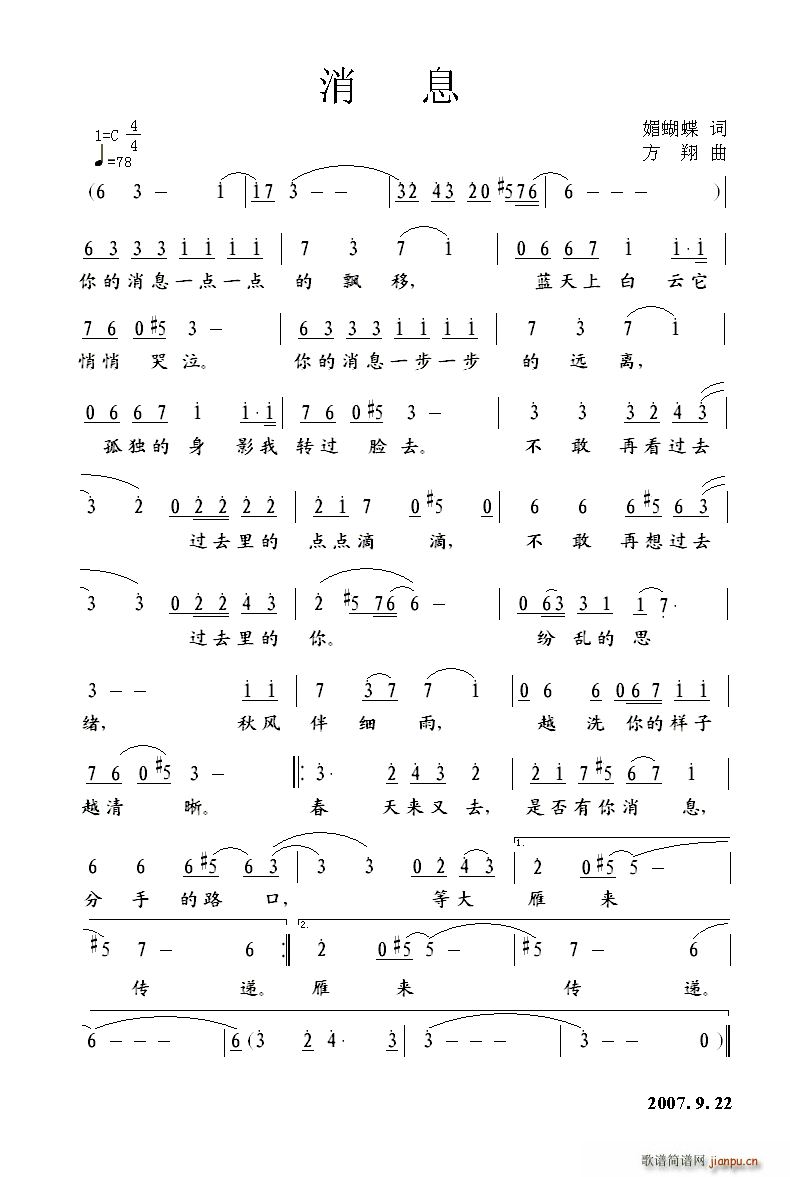 消 息
1=C 4/4
♩=78
媚蝴蝶 词
方 翔 曲
(6 3 — i | i7 3 — — | 32 43 20 #576 | 6 — — )|
63 33 ii ii | 7 3 7 i | 06 67 i i·i
你的消息一点一点 的 飘 移, 蓝天上 白 云它
76 0#5 3 — | 63 33 ii ii | 7 3 7 i |
悄悄 哭 泣。 你的消息一步一步 的 远 离,
06 67 i i·i | 76 0#5 3 — | 3 3 32 43 |
孤独的 身 影我 转过 脸 去。 不 敢 再看过去
3 2 022 22 | 2i 7 0#5 0 | 6 6 6#5 63 |
过去里的 点点滴 滴, 不 敢 再想过去
3 3 022 43 | 2 #5 76 6 — | 063 31 17· |
过去里的 你。 纷 乱的 思
3 — — ii | 7 37 7 i | 06 6 067 ii |
绪, 秋风 伴 细 雨, 越 洗 你的样子
76 0#5 3 — ‖: 3· 2 43 2 | 2i 7#5 67 i |
越清 晰。 春 天来又 去, 是否有你消 息,
6 6 6#5 63 | 3 3 02 43 | 1. 2 0#5 5 — |
分 手 的路 口, 等大 雁 来
#5 7 — 6 :‖ 2. 2 0#5 5 — | #5 7 — 6 |
传 递。 雁 来 传 递。
6 — — — | 6(3 2 4· 3 | 3 — — — | 3 — — 0 )‖
2007.9.22
歌谱简谱网 jianpu.cn